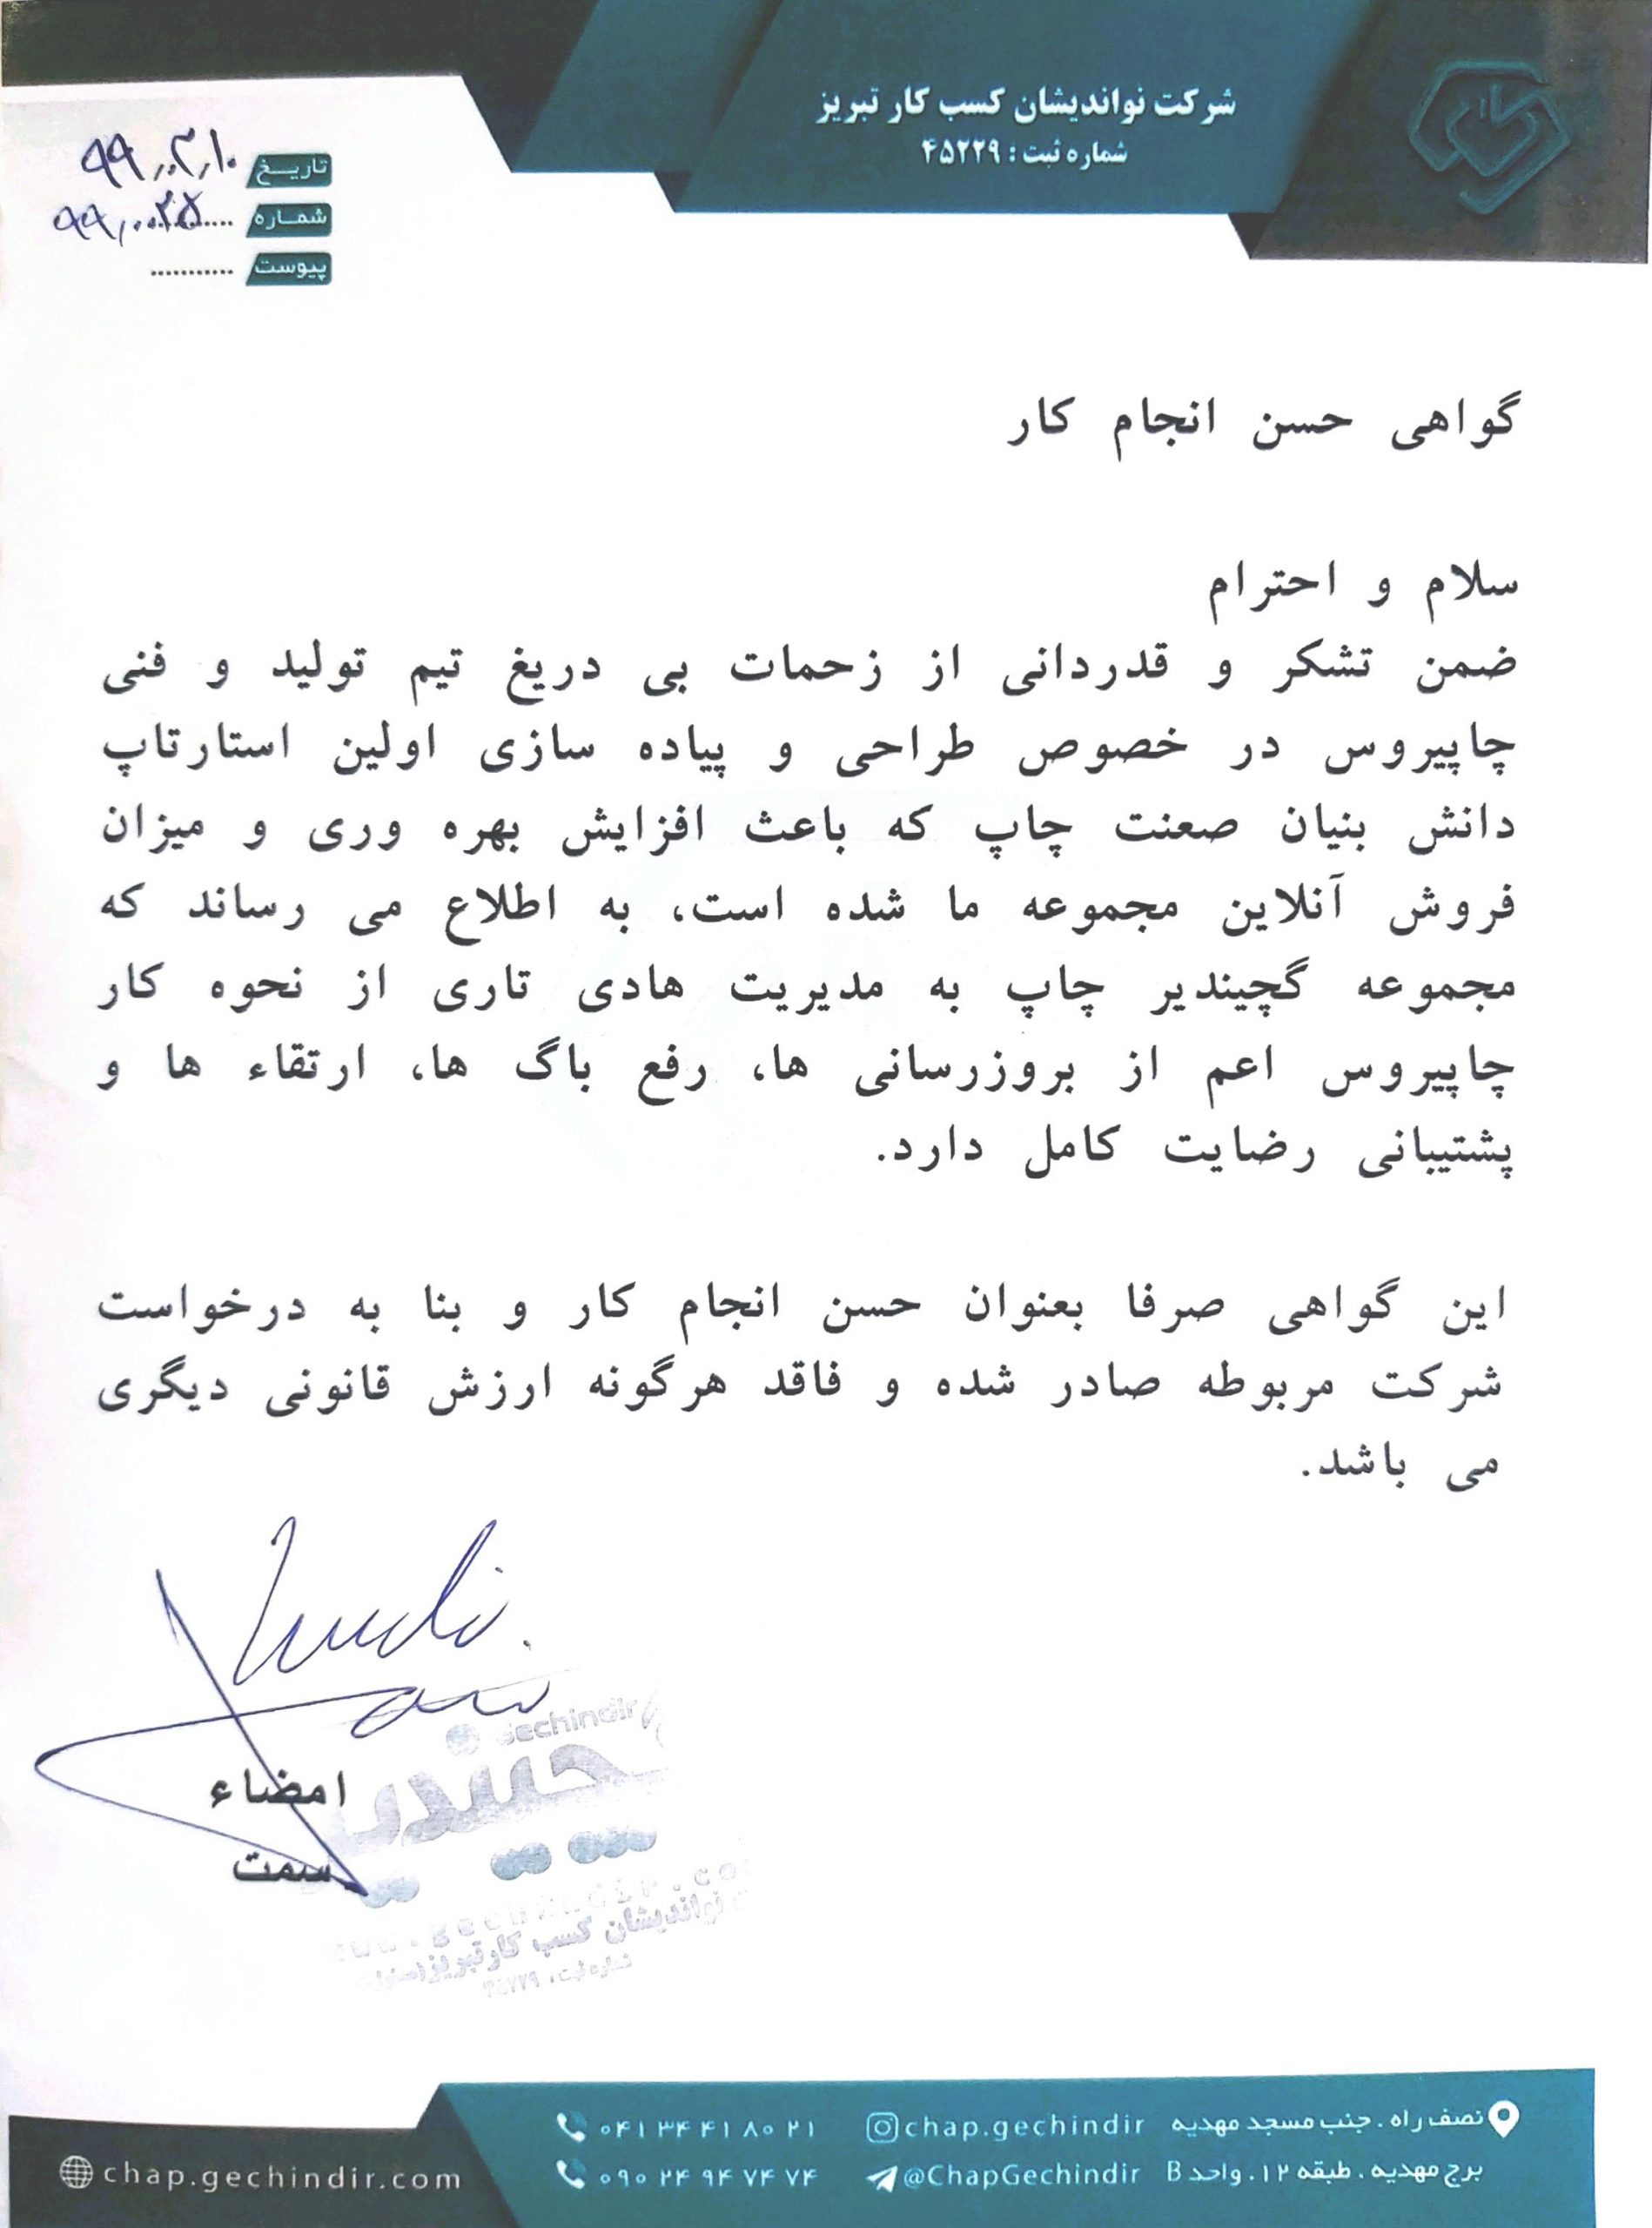 شرکت نواندیشان کسب کار تبریز
شماره ثبت : ۴۵۲۲۹
تاریخ ۹۹,۰۲,۱۰
شماره ۹۹,۰۰۲۵
پیوست ...........
گواهی حسن انجام کار
سلام و احترام
ضمن تشکر و قدردانی از زحمات بی دریغ تیم تولید و فنی
چاپیروس در خصوص طراحی و پیاده سازی اولین استارتاپ
دانش بنیان صعنت چاپ که باعث افزایش بهره وری و میزان
فروش آنلاین مجموعه ما شده است، به اطلاع می رساند که
مجموعه گچیندیر چاپ به مدیریت هادی تاری از نحوه کار
چاپیروس اعم از بروزرسانی ها، رفع باگ ها، ارتقاء ها و
پشتیبانی رضایت کامل دارد.
این گواهی صرفا بعنوان حسن انجام کار و بنا به درخواست
شرکت مربوطه صادر شده و فاقد هرگونه ارزش قانونی دیگری
می باشد.
امضاء
سمت
Gechindir
نواندیشان کسب کار تبریز
شماره ثبت، ۴۵۲۲۹
نصف راه . جنب مسجد مهدیه
برج مهدیه . طبقه ۱۲ . واحد B
chap.gechindir
@ChapGechindir
۰۴۱ ۳۴ ۴۱ ۸۰ ۲۱
۰۹۰ ۲۴ ۹۴ ۷۴ ۷۴
chap.gechindir.com